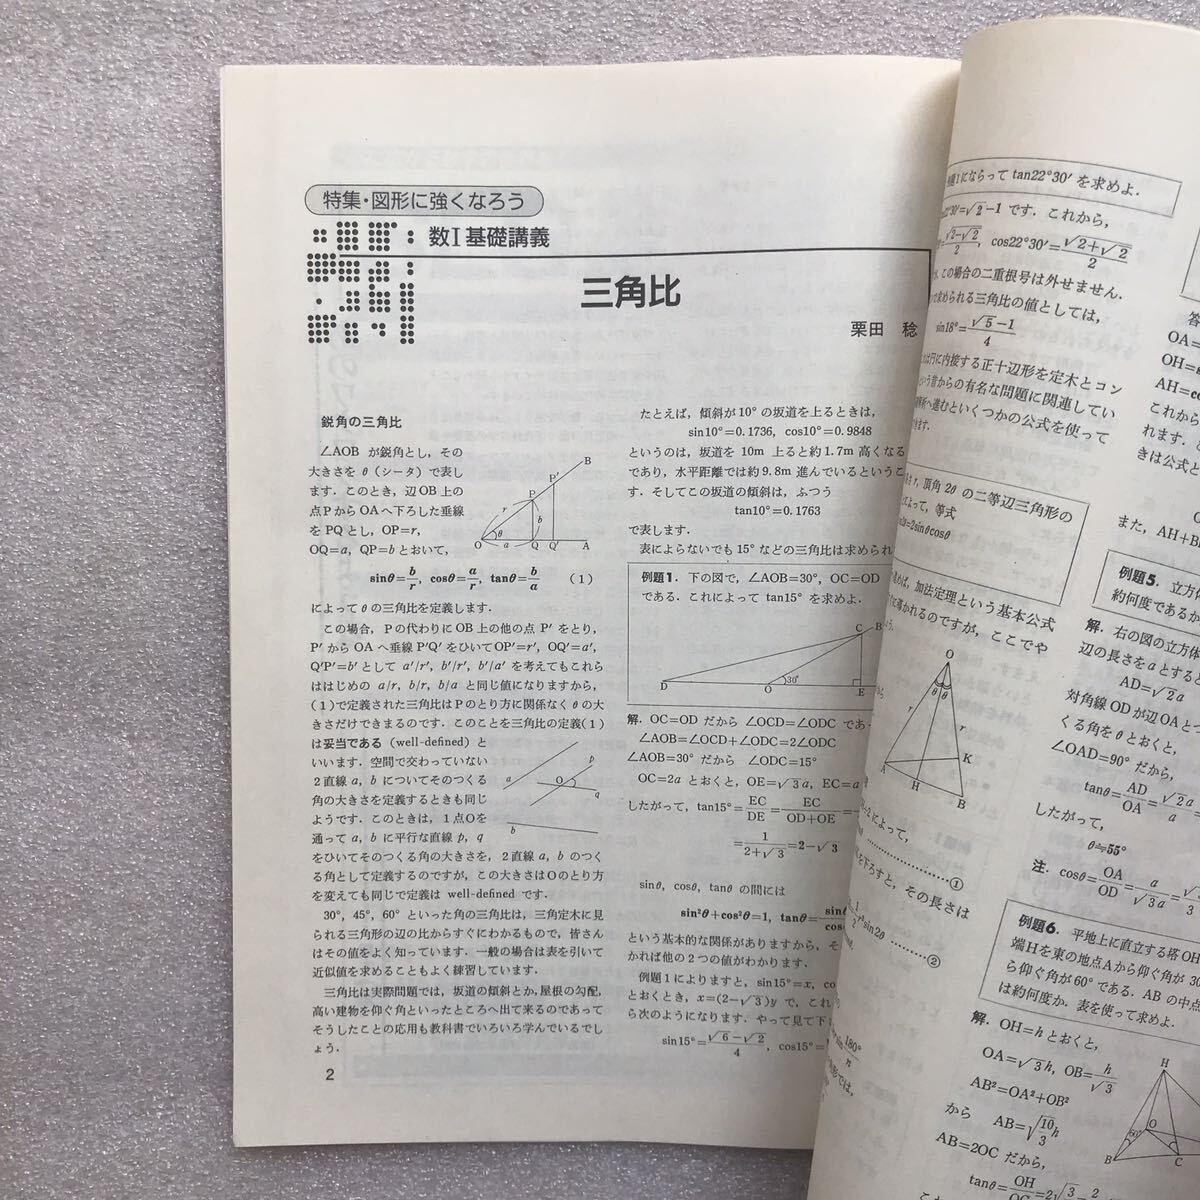 特集・図形に強くなろう
数I基礎講義
三角比
栗田 稔
鋭角の三角比
∠AOB が鋭角とし，その
大きさを θ（シータ）で表し
ます．このとき，辺OB上の
点PからOAへ下ろした垂線
を PQ とし，OP=r，
OQ=a，QP=b とおいて，
B
P′
P
r
b
θ
O
a
Q
Q′
A
sinθ=b/r, cosθ=a/r, tanθ=b/a (1)
によって θ の三角比を定義します．
この場合，Pの代わりにOB上の他の点 P′ をとり，
P′ から OA へ垂線 P′Q′ をひいてOP′=r′，OQ′=a′，
Q′P′=b′ として a′/r′, b′/r′, b′/a′ を考えてもこれら
ははじめの a/r, b/r, b/a と同じ値になりますから，
(1)で定義された三角比はPのとり方に関係なく θ の大
きさだけできまるのです．このことを三角比の定義(1)
は妥当である（well-defined）と
いいます．空間で交わっていない
2直線 a, b についてそのつくる
角の大きさを定義するときも同じ
ようです．このときは，1点Oを
通って a, b に平行な直線 p, q
a
p
O
q
b
をひいてそのつくる角の大きさを，2直線 a, b のつく
る角として定義するのですが，この大きさはOのとり方
を変えても同じで定義は well-defined です．
30°，45°，60° といった角の三角比は，三角定木に見
られる三角形の辺の比からすぐにわかるもので，皆さん
はその値をよく知っています．一般の場合は表を引いて
近似値を求めることもよく練習しています．
三角比は実際問題では，坂道の傾斜とか，屋根の勾配，
高い建物を仰ぐ角といったところへ出て来るのであって
そうしたことの応用も教科書でいろいろ学んでいるでし
ょう．
2
たとえば，傾斜が10° の坂道を上るときは，
sin10°=0.1736, cos10°=0.9848
というのは，坂道を 10m 上ると約1.7m 高くなる
であり，水平距離では約9.8m 進んでいるというこ
す．そしてこの坂道の傾斜は，ふつう
tan10°=0.1763
で表します．
表によらないでも 15° などの三角比は求められ
例題1. 下の図で，∠AOB=30°，OC=OD
である．これによって tan15° を求めよ．
C
B
D
O
30°
E
解．OC=OD だから ∠OCD=∠ODC であっ
∠AOB=∠OCD+∠ODC=2∠ODC
∠AOB=30° だから ∠ODC=15°
OC=2a とおくと，OE=√3a，EC=a
したがって，tan15°=EC/DE=EC/OD+OE=
=1/2+√3=2−√3
sinθ, cosθ, tanθ の間には
sin²θ+cos²θ=1, tanθ=sinθ/cos
という基本的な関係がありますから，そ
かれば他の2つの値がわかります．
例題1によりますと，sin15°=x，co
とおくとき，x=(2−√3)y で，これ
ら次のようになります．やって見て下
sin15°=√6−√2/4, cos15°=
例題1にならって tan22°30′ を求めよ．
22°30′=√2−1 です．これから，
√2−√2/2, cos22°30′=√2+√2/2
，この場合の二重根号は外せません．
求められる三角比の値としては，
sin18°=√5−1/4
円に内接する正十辺形を定木とコン
いう昔からの有名な問題に関連してい
へ進むといくつかの公式を使って
きます．
r，頂角 2θ の二等辺三角形の
よって，等式
=2sinθcosθ
めば，加法定理という基本公式
に導かれるのですが，ここでや
O
θ θ
r
r
K
A
H
B
によって，
①
を下ろすと，その長さは
1/2 r² sin2θ
②
180°/n
形では，
答
OA=
OH=
AH=
これから
れます．
きは公式と
また，AH+B
例題5. 立方体
約何度であるか
解．右の図の立方体
辺の長さをaとすると
AD=√2a
対角線ODが辺OAとつ
くる角をθとおくと，
∠OAD=90° だから，
tanθ=AD/OA=√2a/a
したがって，
θ≒55°
注．cosθ=OA/OD=a/√3a=√3/3
例題6. 平地上に直立する塔OH
端Hを東の地点Aから仰ぐ角が 30
ら仰ぐ角が60°である．ABの中点
は約何度か．表を使って求めよ．
解．OH=h とおくと，
OA=√3h，OB=h/√3
AB²=OA²+OB²
から AB=√10/3h
AB=2OC だから，
tanθ=OH/OC=2√3
H
O
60°
B
C